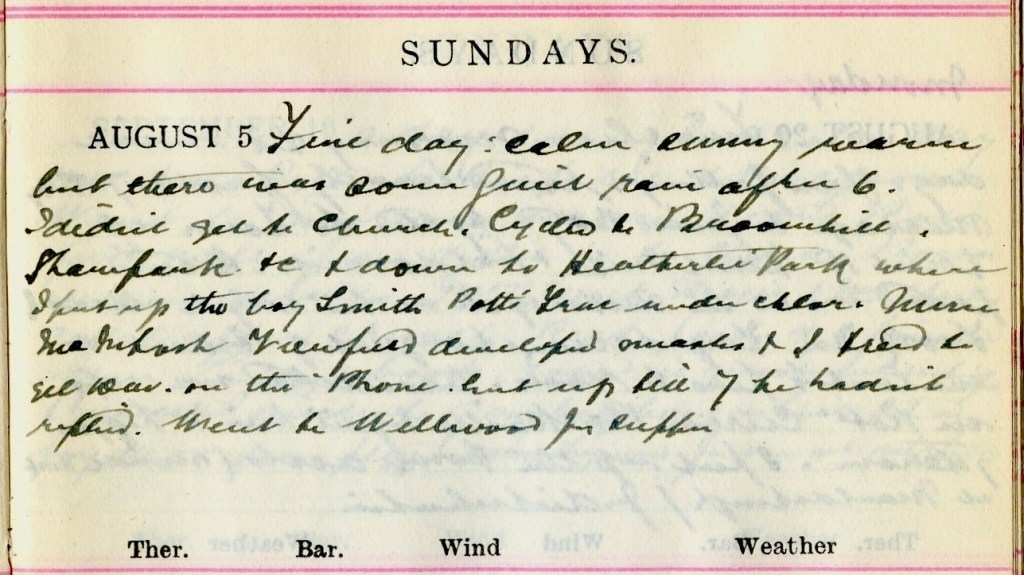 SUNDAYS.
AUGUST 5 Fine day: calm sunny warm
but there was some quiet rain after 6.
I didn't get to Church. Cycled to Broomhill.
Shawpark &c & down to Heatherlie Park where
I put up the boy Smith Potts' frac under chlor. Nurse
McIntosh Viewfield developed measles & I tried to
get Dav. on the Phone. but up till 7 he hadn't
replied. Went to Wellwood for supper
Ther. Bar. Wind Weather